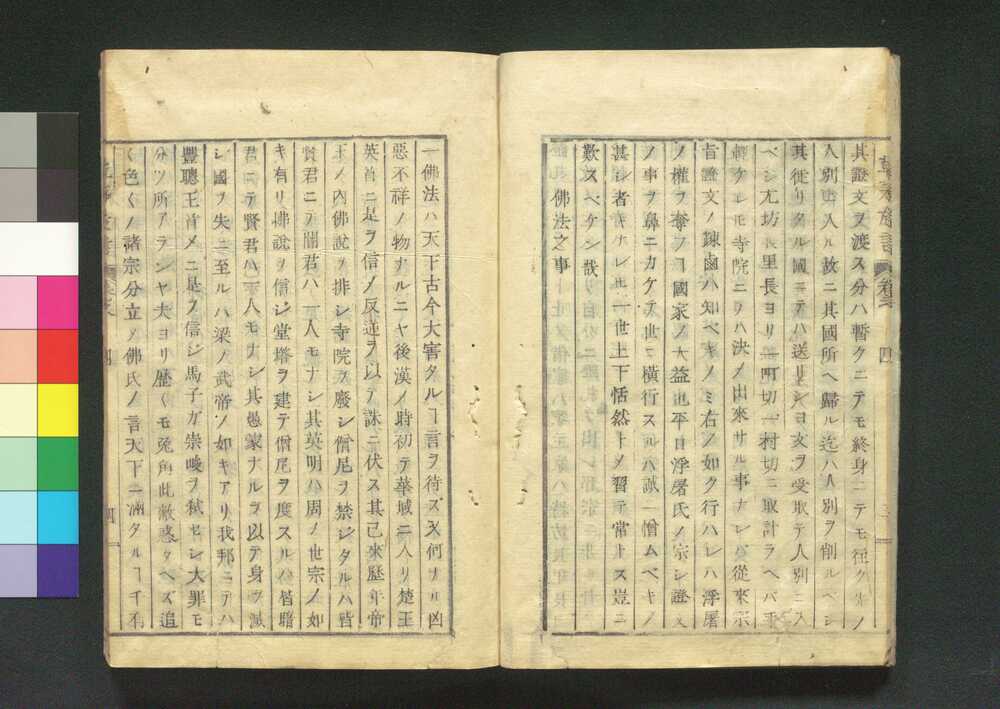 其證文ヲ渡ス分ハ暫クニテモ終身ニテモ往ク先ノ
人別ニ入ル故ニ其國所ヘ歸ル迄ハ人別ヲ削ルベシ
其從リタル國ニテハ送リシヨ文ヲ受取テ人別ニ入
ベシ尤坊長里長ヨリ一町切一村切ニ取計ラヘバ重
寺院ニヲハ決ノ出來サル事ナレバ從來宗
旨證文ノ疎鹵ハ知ベキノミ右ノ如ク行ハレハ浮屠
ノ權ヲ奪フヿ國家ノ大益也平日浮屠氏ノ宗シ證文
ノ事ヲ鼻ニカケテ世ニ橫行スルハ誠ニ憎ムベキノ
甚シキ者ナレ𪜈一世上下恬然トメ習テ常トス豈ニ
歎スベケン哉
佛法之事
一佛法ハ天下古今大害タルヿ言ヲ待ズ又何ナル凶
惡不祥ノ物ナルニヤ後漢ノ時初テ華域ニ入リ楚王
英首ニ是ヲ信ノ反逆ヲ以テ誅ニ伏ス其已來歷年帝
王ノ內佛說ヲ排シ寺院ヲ廢シ僧尼ヲ禁シタルハ皆
賢君ニテ闇君ハ一人モナシ其英明ハ周ノ世宗ノ如
キ有リ佛說ヲ信シ堂塔ヲ建テ僧尼ヲ度スルハ皆暗
君ニテ賢君ハ一人モナシ其愚蒙ナルヲ以テ身ヲ滅
シ國ヲ失ニ至ルハ梁ノ武帝ノ如キアリ我邦ニテハ
豐聰王首メニ是ヲ信シ馬子ガ崇峻ヲ弑セシ大罪モ
分ツ所アランヤ夫ヨリ歷〱モ兎角此敝惑タヘズ追
〱色〱ノ諸宗分立ノ佛氏ノ言天下ニ滿タルヿイ不